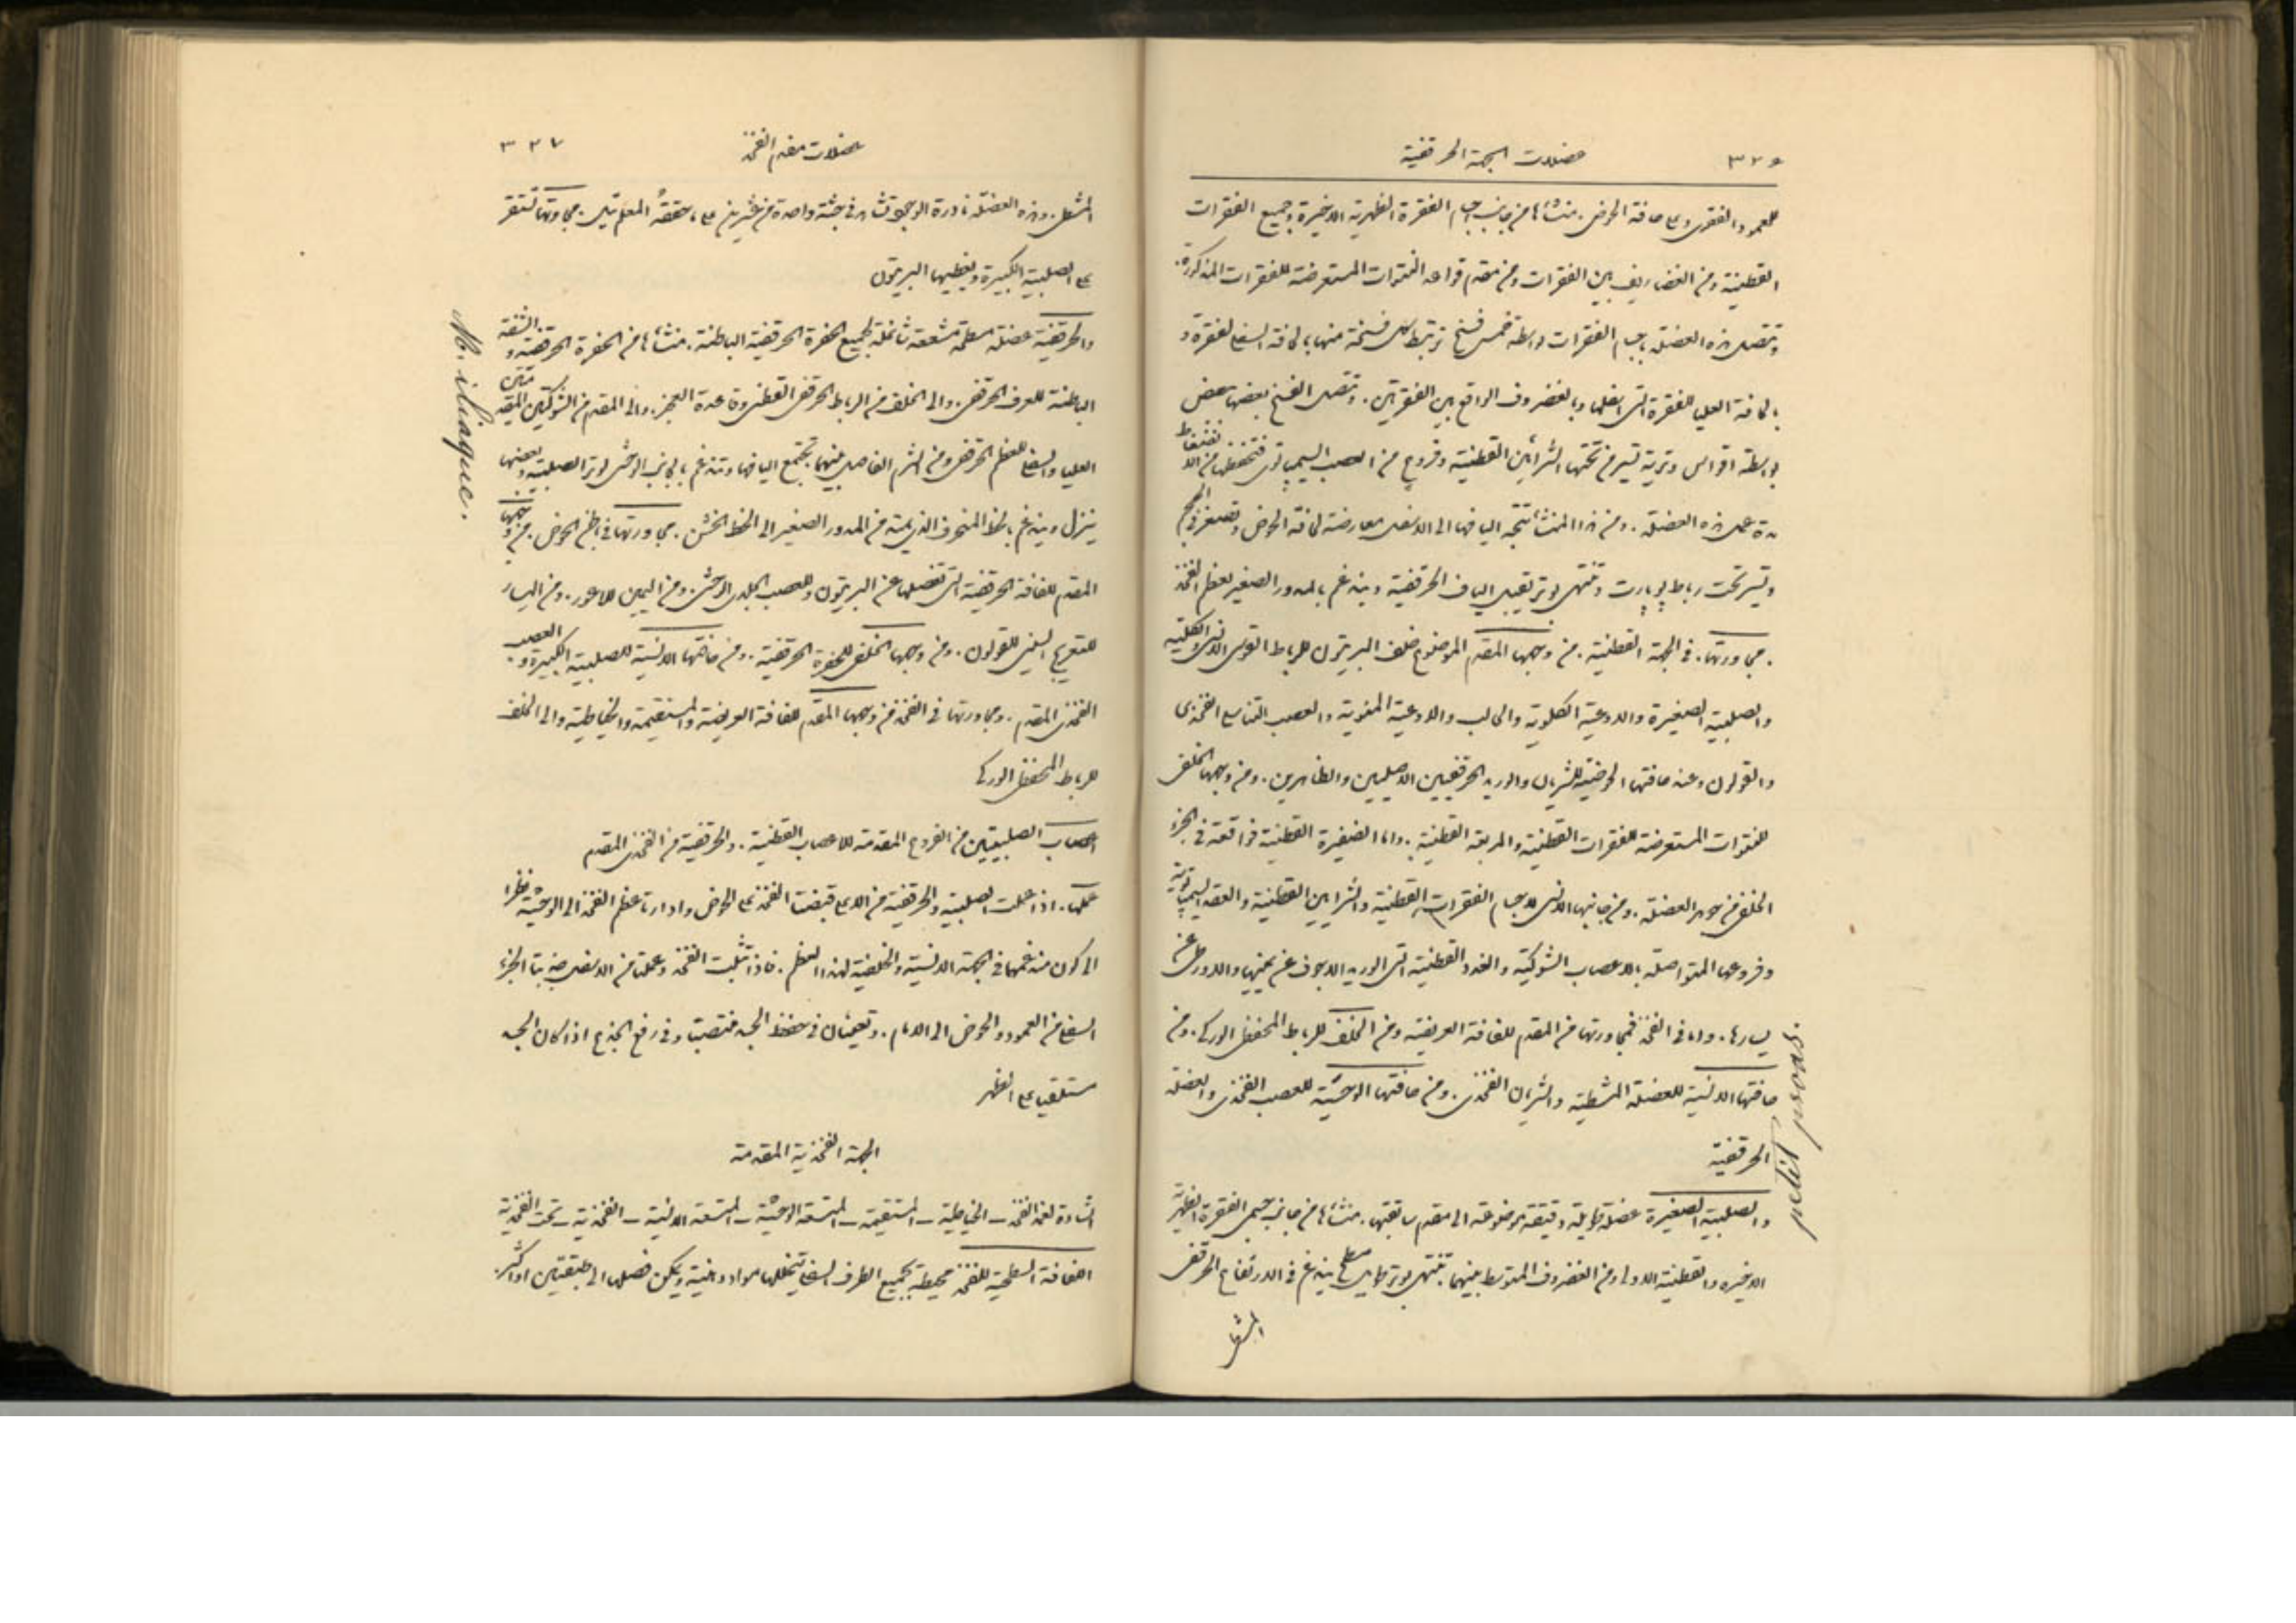 ٣٢٦ عضلات الجهة الحرقفية
للعمود الفقرى وعلى حافة الحوض. منشأها من جانب اجسام الفقرة الظهرية الاخيرة وجميع الفقرات
القطنية ومن الغضاريف بين الفقرات ومن مقدم قواعد النتوات المستعرضة للفقرات المذكورة.
وتتصل هذه العضلة باجسام الفقرات بواسطة خمس فسخ ترتبط كل فسخة منها بالحافة السفلى لفقرة و
بالحافة العليا للفقرة التى اسفلها وبالغضروف الواقع بين الفقرتين. وتتصل الفسخ بعضها ببعض
بواسطة اقواس وترية تسير من تحتها الشرايين القطنية وفروع من العصب السيمباتوى فتحفظها من الانضغاط
مدة عمل هذه العضلة. ومن هذا المنشأ تتجه اليافها الى الاسفل معارضة لحافة الحوض وتصغر فى الحجم
وتسير تحت رباط پوپارت وتنتهى بوتر يقبل الياف الحرقفية ويندغم بالمدور الصغير لعظم الفخذ
. مجاورتها. فى الجهة القطنية. من وجهها المقدم الموضوع خلف البريتون للرباط القوسى الانسى والكلية
والصلبية الصغيرة والاوعية الكلوية والحالب والاوعية المنوية والعصب التناسلى الفخذى
والقولون وعند حافتها الحوضية للشريان والوريد الحرقفيين الاصليين والظاهرين. ومن وجهها الخلفى
للنتوات المستعرضة للفقرات القطنية والمربعة القطنية. واما الضفيرة القطنية فواقعة فى الجزء
الخلفى من جوهر العضلة. ومن جانبها الانسى لاجسام الفقرات القطنية والشرايين القطنية والعقد السيمباتوية
وفروعها المتواصلة بالاعصاب الشوكية والغدد القطنية الى الوريد الاجوف عن يمينها والاورطى عن
يسارها. واما فى الفخذ فمجاورتها من المقدم للفافة العريضة ومن الخلف للرباط المحفظى الوركى. ومن
حافتها الانسية للعضلة المشطية والشريان الفخذى. ومن حافتها الوحشية للعصب الفخذى والعضلة
الحرقفية
petit psoas
والصلبية الصغيرة عضلة طويلة دقيقة موضوعة الى مقدم سابقتها. منشأها من جانب جسمى الفقرة الظهرية
الاخيرة والقطنية الاولى ومن الغضروف المتوسط بينهما. تنتهى بوتر طويل مسطح يندغم فى الارتفاع الحرقفى
المشطى
٣٢٧ عضلات مقدم الفخذ
المشطى. وهذه العضلة نادرة الوجود تشاهد فى جثة واحدة من عشرين على ما حققه المعلم تيل. مجاورتها تستقر
على الصلبية الكبيرة ويغطيها البريتون
M. iliaque.
والحرقفية عضلة مسطحة مشععة شاغلة لجميع الحفرة الحرقفية الباطنة. منشأها من الحفرة الحرقفية والشفة
الباطنة للعرف الحرقفى. والى الخلف من الرباط الحرقفى القطنى وقاعدة العجز. والى المقدم من الشوكتين المقدمتين
العليا والسفلى للعظم الحرقفى ومن الثرم الفاصل بينهما تجتمع اليافها وتندغم بالجانب الوحشى لوتر الصلبية وبعضها
ينزل ويندغم بالخط المنحرف الذى يمتد من المدور الصغير الى الخط الخشن. مجاورتها فى باطن الحوض. من وجهها
المقدم للفافة الحرقفية التى تفصلها عن البريتون وللعصب الجلدى الوحشى. ومن اليمين للاعور. ومن اليسار
للتعريج السينى للقولون. ومن وجهها الخلفى للحفرة الحرقفية. ومن حافتها الانسية للصلبية الكبيرة والعصب
الفخذى المقدم. ومجاورتها فى الفخذ من وجهها المقدم للفافة العريضة والمستقيمة والخياطية والى الخلف
للرباط المحفظى الوركى
اعصاب الصلبيتين من الفروع المقدمة للاعصاب القطنية. والحرقفية من الفخذى المقدم
عملها. اذا عملت الصلبية والحرقفية من الاعلى قبضتا الفخذ على الحوض وادارتا عظم الفخذ الى الوحشية نظرا
الى كون مندغمها فى الجهة الانسية والخلفية لهذا العظم. فاذا ثبت الفخذ وعملتا من الاسفل جذبتا الجزء
السفلى من العمود والحوض الى الامام. وتعينان فى حفظ الجسد منتصبا وفى رفع الجذع اذا كان الجسد
مستلقيا على الظهر
الجهة الفخذية المقدمة
الشادة لغمد الفخذ – الخياطية – المستقيمة – المتسعة الوحشية – المتسعة الانسية – الفخذية – تحت الفخذية
اللفافة السطحية للفخذ محيطة بجميع الطرف السفلى تتخللها مواد دهنية ويمكن فصلها الى طبقتين او اكثر.